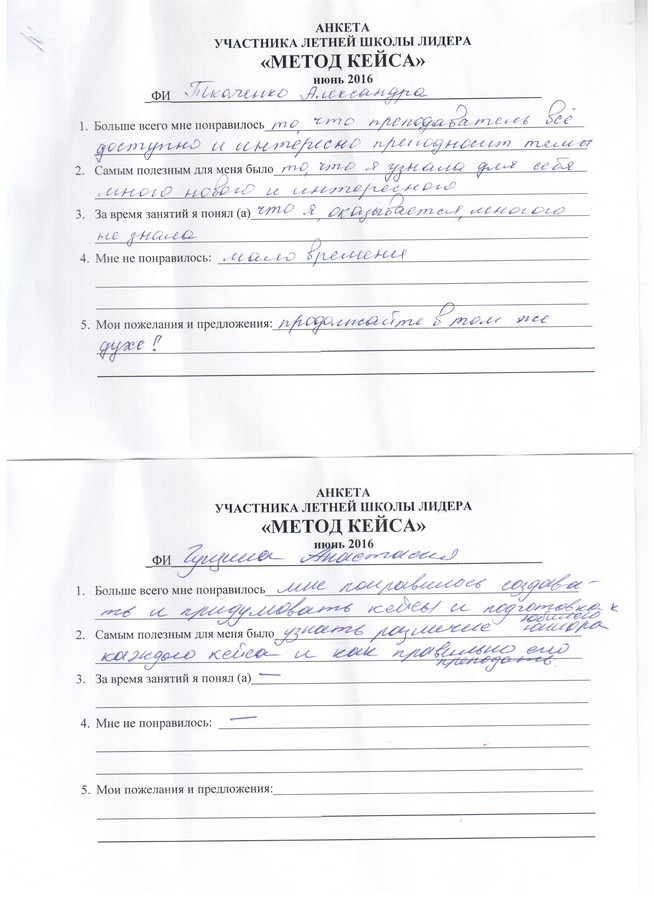 АНКЕТА
УЧАСТНИКА ЛЕТНЕЙ ШКОЛЫ ЛИДЕРА
«МЕТОД КЕЙСА»
июнь 2016
ФИ Ткаченко Александра
1. Больше всего мне понравилось то, что преподаватель всё
доступно и интересно преподносит темы
2. Самым полезным для меня было то, что я узнала для себя
много нового и интересного
3. За время занятий я понял (а) что я, оказывается, многого
не знала
4. Мне не понравилось: мало времени
5. Мои пожелания и предложения: продолжайте в том же
духе!
АНКЕТА
УЧАСТНИКА ЛЕТНЕЙ ШКОЛЫ ЛИДЕРА
«МЕТОД КЕЙСА»
июнь 2016
ФИ Анастасия
1. Больше всего мне понравилось мне понравилось создава-
ть и придумовать кейсы и подготовка к
юбилею
2. Самым полезным для меня было узнать различие юниора
каждого кейса и как правильно его
преподать.
3. За время занятий я понял (а) —
4. Мне не понравилось: —
5. Мои пожелания и предложения: